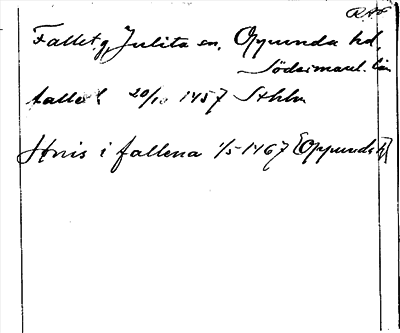 RAP
Fallet, g, Julita sn, Oppunda hd,
Södermanl. län
fallet 20/10 1457 Sthlm
Jönis i fallena 1/5 1467 [Oppunda h]